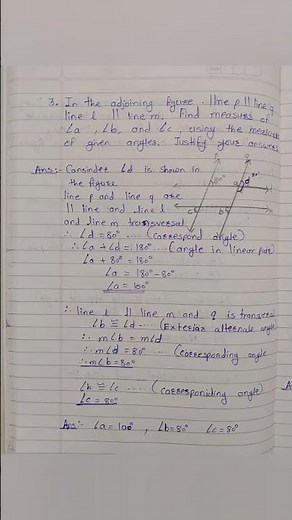 3. In the adjoining figure. line p || line q
line l || line m. Find measures of
∠a, ∠b, and ∠c, using the measures
of given angles. Justify your answers
Ans:- Consider ∠d is shown in
the figure
line p and line q are
|| line and line l
and line m transversal
80°
a d
c b
∴ ∠d = 80° .... (correspond angle)
∴ ∠a + ∠d = 180° ... (angle in linear pair)
∠a + 80° = 180°
∠a = 180° - 80°
∠a = 100°
∴ line l || line m and q is transver
∠b ≅ ∠d .... (Exterior alternate angle
∴ m∠b = m∠d
∴ m∠d = 80° ... (Corresponding angle
∴ m∠b = 80°
∠b ≅ ∠c .... (corresponiding angle)
∠c = 80°
Ans:- ∠a = 100°, ∠b = 80° ∠c = 80°